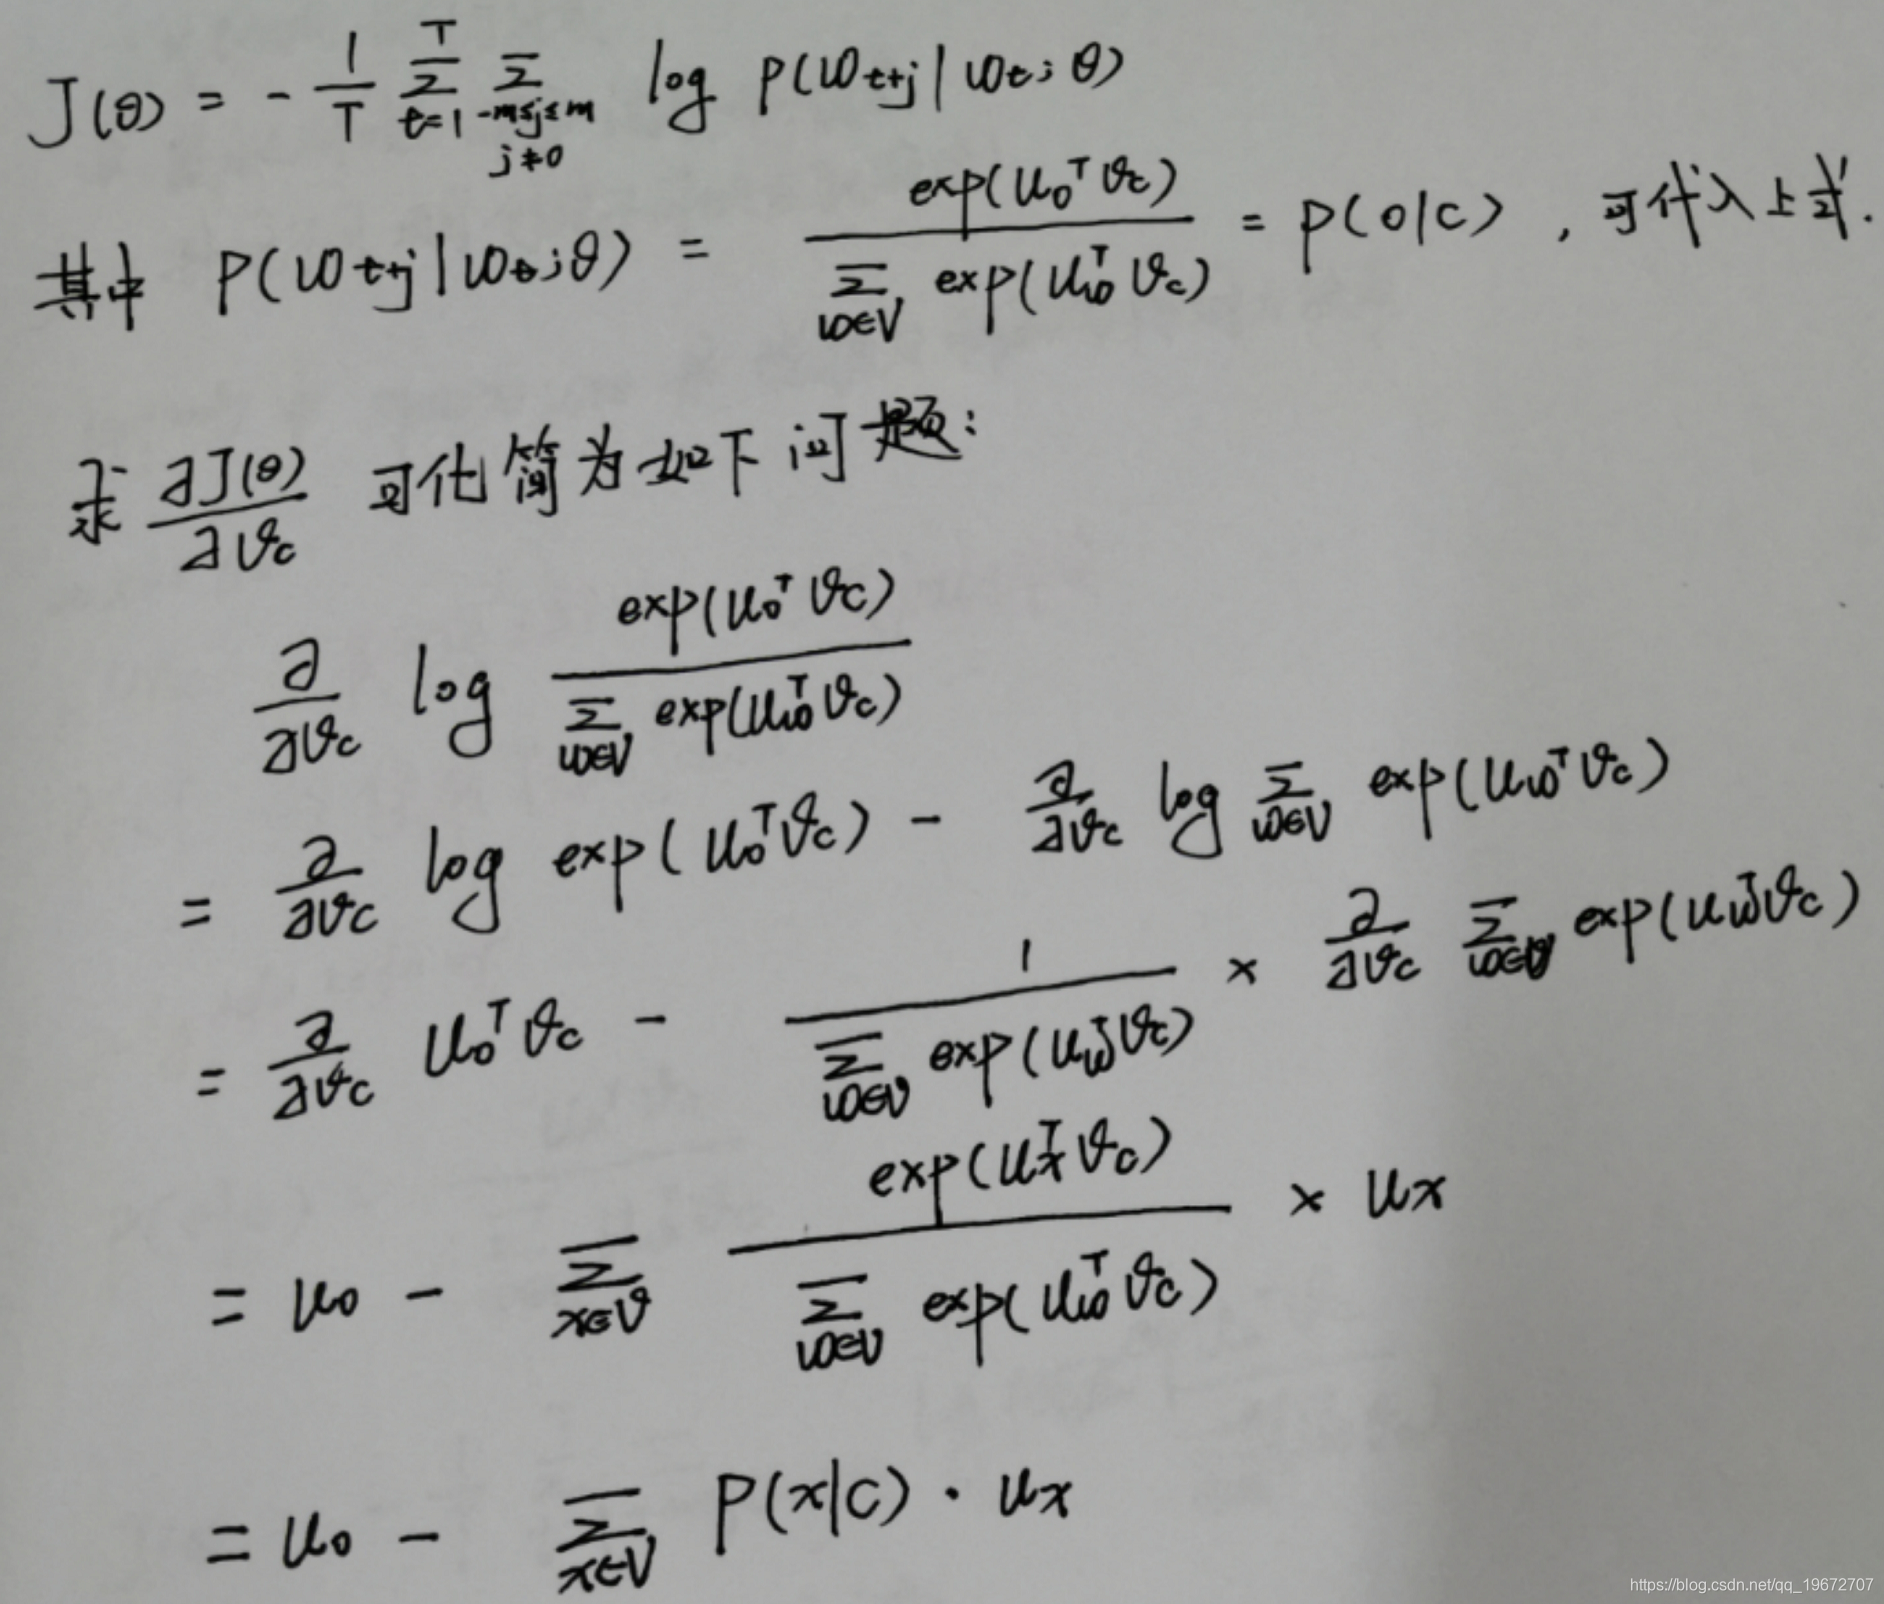 J(θ) = - 1/T Σ_{t=1}^{T} Σ_{-m≤j≤m, j≠0} log p(w_{t+j} | w_t; θ)
其中 P(w_{t+j} | w_t; θ) = exp(u_o^T v_c) / Σ_{w∈V} exp(u_w^T v_c) = p(o|c) ，可代入上式.
求 ∂J(θ)/∂v_c 可化简为如下问题:
∂/∂v_c log exp(u_o^T v_c) / Σ_{w∈V} exp(u_w^T v_c)
= ∂/∂v_c log exp(u_o^T v_c) - ∂/∂v_c log Σ_{w∈V} exp(u_w^T v_c)
= ∂/∂v_c u_o^T v_c - 1 / Σ_{w∈V} exp(u_w^T v_c) × ∂/∂v_c Σ_{w∈V} exp(u_w^T v_c)
= u_o - Σ_{x∈V} exp(u_x^T v_c) / Σ_{w∈V} exp(u_w^T v_c) × u_x
= u_o - Σ_{x∈V} P(x|c) · u_x
https://blog.csdn.net/qq_19672707